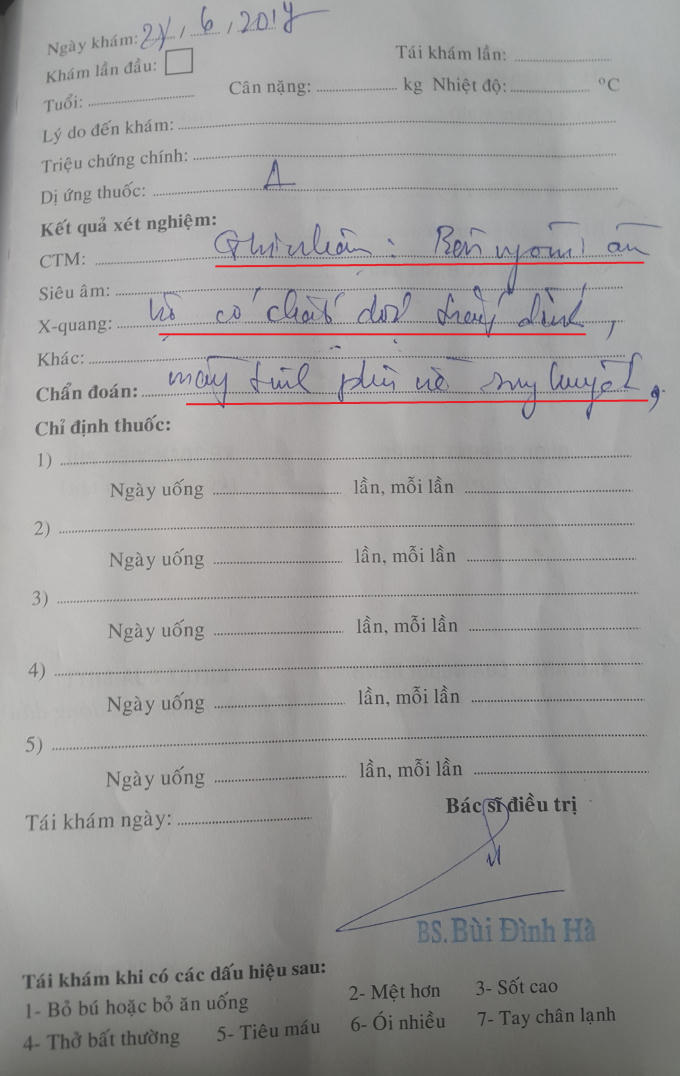 Ngày khám: 2 / 6 , 2017
Khám lần đầu: Tái khám lần:
Tuổi: Cân nặng: kg Nhiệt độ: ºC
Lý do đến khám:
Triệu chứng chính:
Dị ứng thuốc:
Kết quả xét nghiệm:
CTM: Ghi nhận: Bên ngoài
Siêu âm:
X-quang: có chất dính,
Khác:
Chẩn đoán: phù nề huyết,
Chỉ định thuốc:
1)
Ngày uống lần, mỗi lần
2)
Ngày uống lần, mỗi lần
3)
Ngày uống lần, mỗi lần
4)
Ngày uống lần, mỗi lần
5)
Ngày uống lần, mỗi lần
Tái khám ngày:
Bác sĩ điều trị
BS. Bùi Đình Hà
Tái khám khi có các dấu hiệu sau:
1- Bỏ bú hoặc bỏ ăn uống 2- Mệt hơn 3- Sốt cao
4- Thở bất thường 5- Tiêu máu 6- Ói nhiều 7- Tay chân lạnh